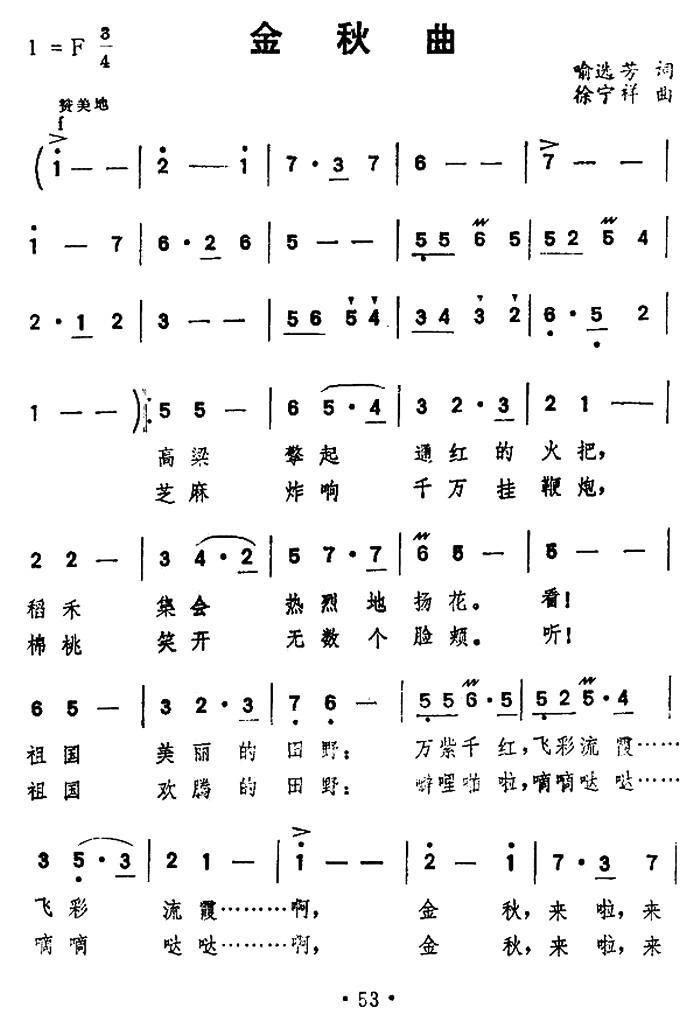 1 = F 3/4
金秋曲
喻选芳 词
徐宁祥 曲
赞美地
f
( 1 — — | 2 — 1 | 7 · 3 7 | 6 — — | 7 — — |
1 — 7 | 6 · 2 6 | 5 — — | 5 5 6 5 | 5 2 5 4 |
2 · 1 2 | 3 — — | 5 6 5 4 | 3 4 3 2 | 6 · 5 2 |
1 — — ) |: 5 5 — | 6 5 · 4 | 3 2 · 3 | 2 1 — |
高梁 擎起 通红的火把，
芝麻 炸响 千万挂鞭炮，
2 2 — | 3 4 · 2 | 5 7 · 7 | 6 5 — | 5 — — |
稻禾 集会 热烈地扬花。 看！
棉桃 笑开 无数个脸颊。 听！
6 5 — | 3 2 · 3 | 7 6 — | 5 5 6 · 5 | 5 2 5 · 4 |
祖国 美丽的田野： 万紫千红，飞彩流霞……
祖国 欢腾的田野： 噼哩啪啦，嘀嘀哒哒……
3 5 · 3 | 2 1 — | 1 — — | 2 — 1 | 7 · 3 7 |
飞彩 流霞………啊， 金 秋，来啦，来
嘀嘀 哒哒………啊， 金 秋，来啦，来
· 53 ·